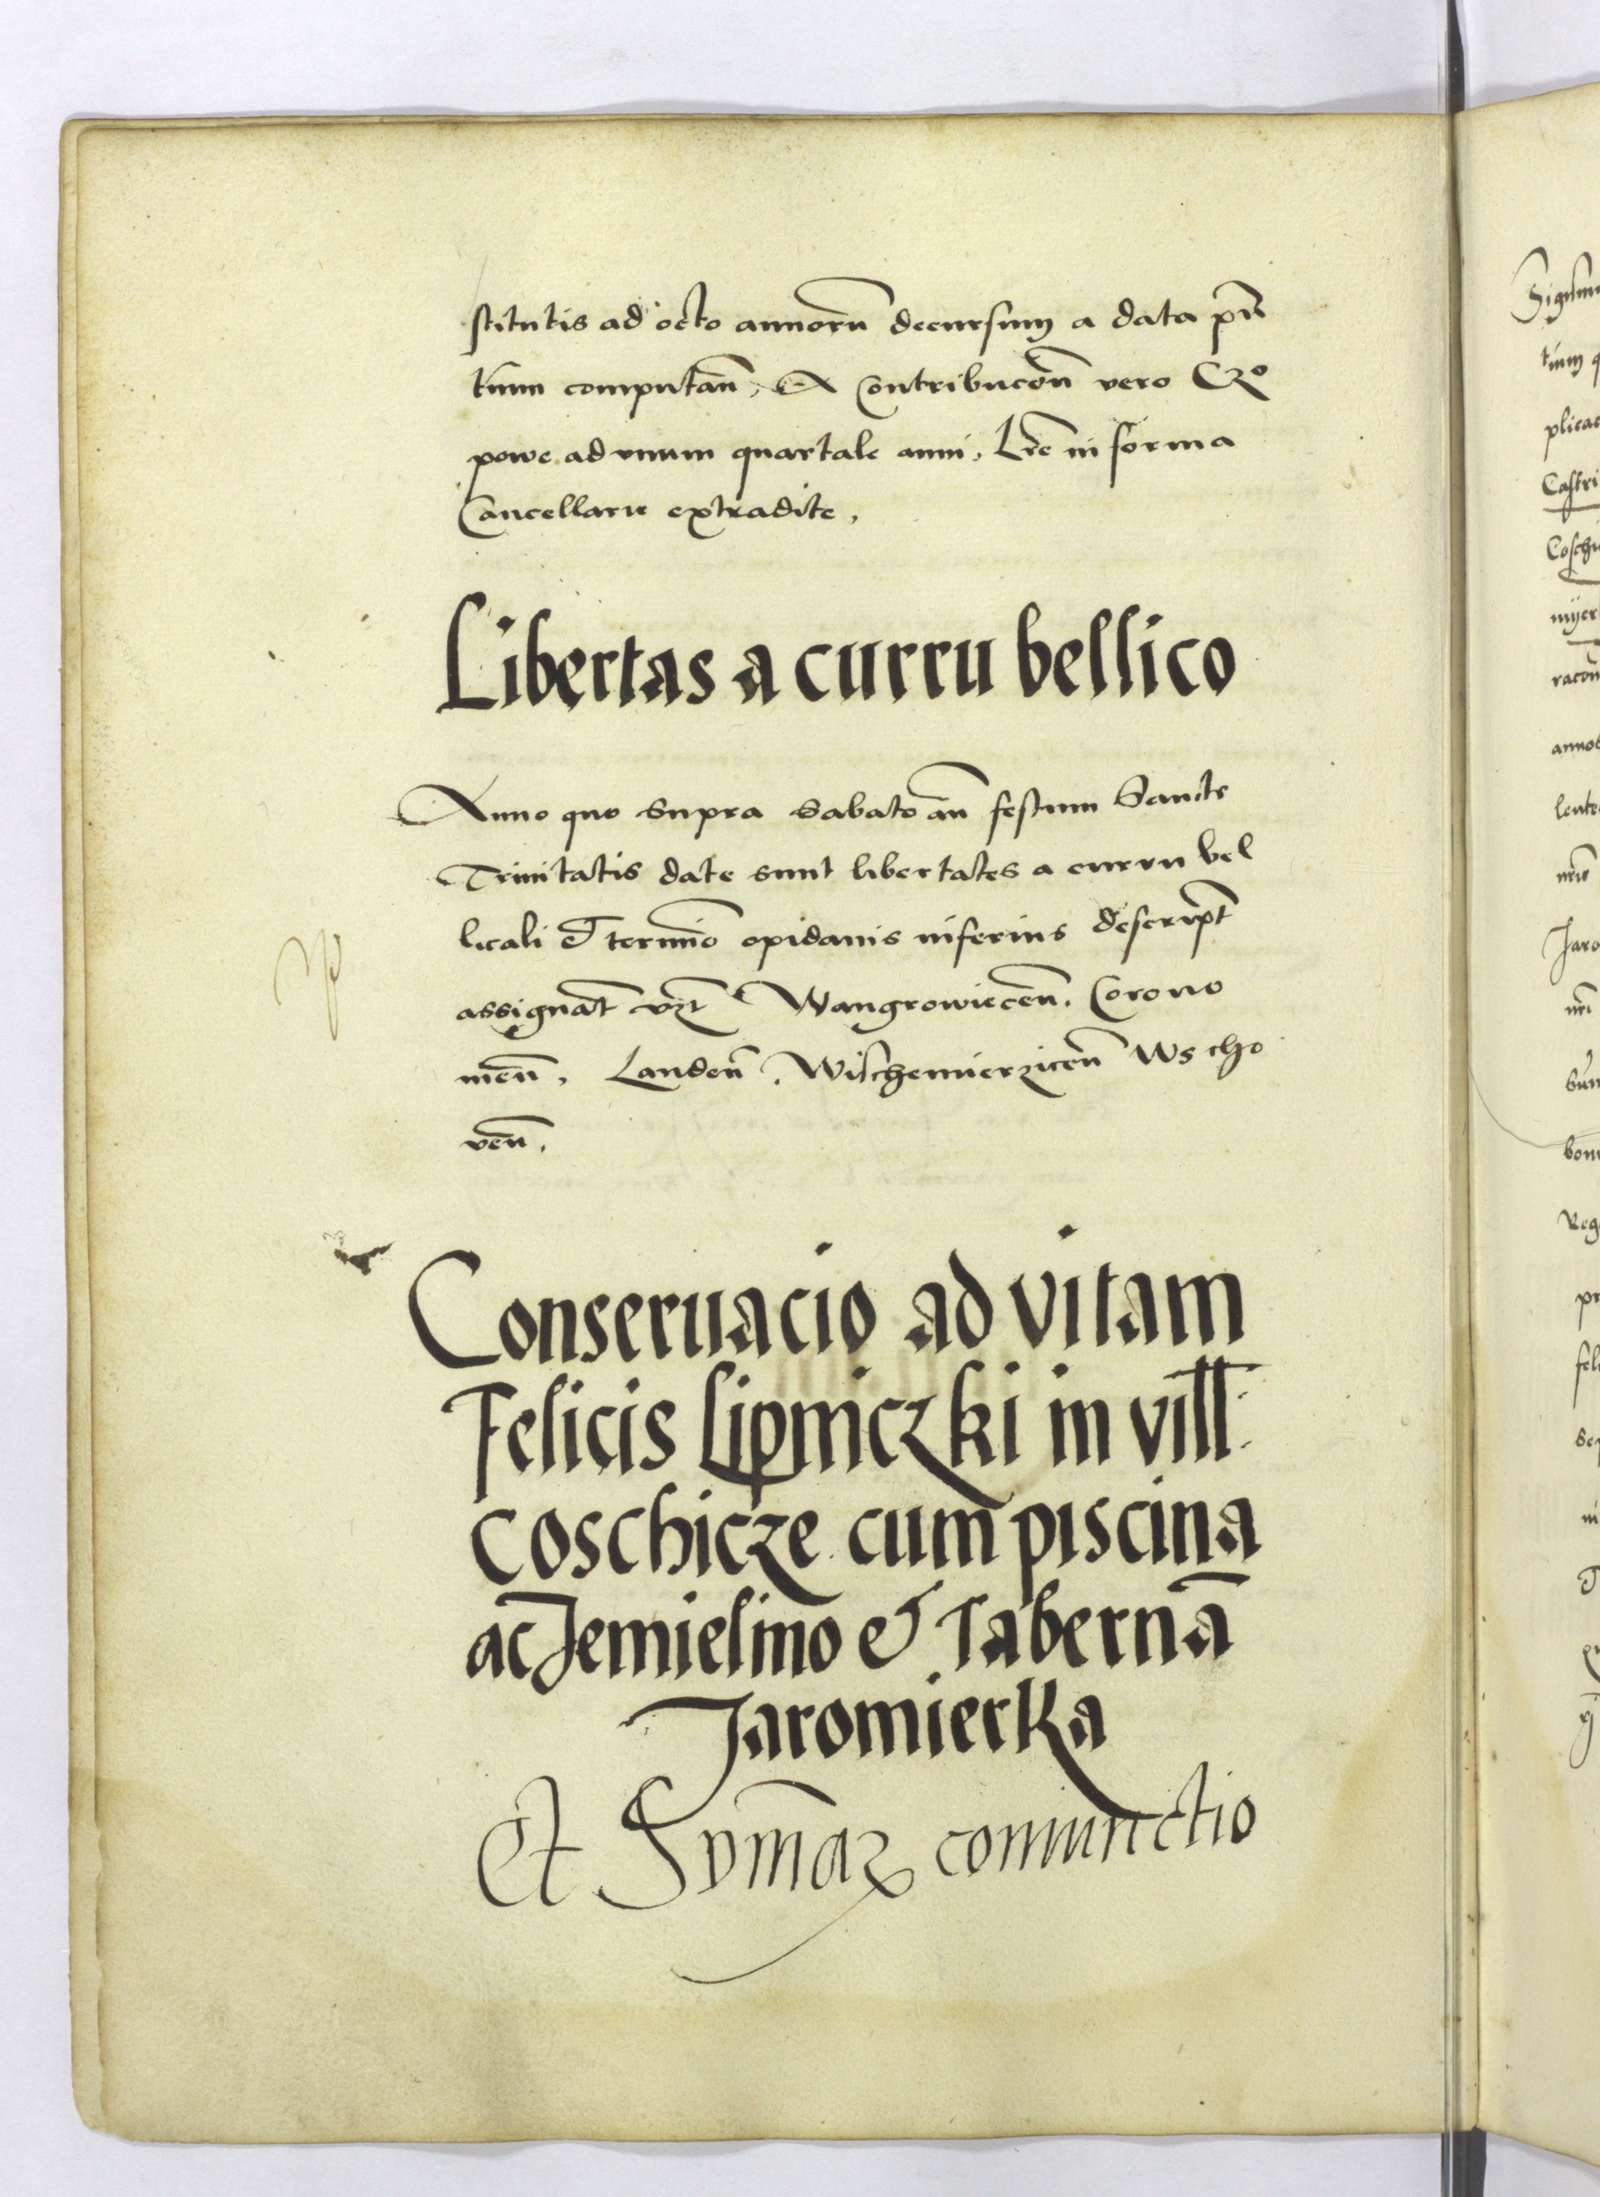 stitutis ad octo annorũ decursum a data pñ
tium computañ, A Contribucoñ vero Czo
powe ad unum quartale anni, Lr̃e in forma
Cancellarie extradite,
Libertas a curru bellico
Anno quo supra sabato añ festum Sancte
Trinitatis date sunt libertates a curru bel
licali et termĩo opidanis inferius descript̃
assignat̃ vzt Wangrowiecen̄. Corono
men̄, Landen̄, Wischemierzicen̄ Wscho
ven̄,
Conseruacio ad vitam
Felicis Lipniczki in vill
Coschicze cum piscina
ac Jemielino et Taberna
Jaromierka
Et Sum̃aꝝ coniunctio
Sigismu
tium q
plicac
Castri
Coschi
mijer
racoñ
annos
lente
Jaro
bon
Reg
pr
fel